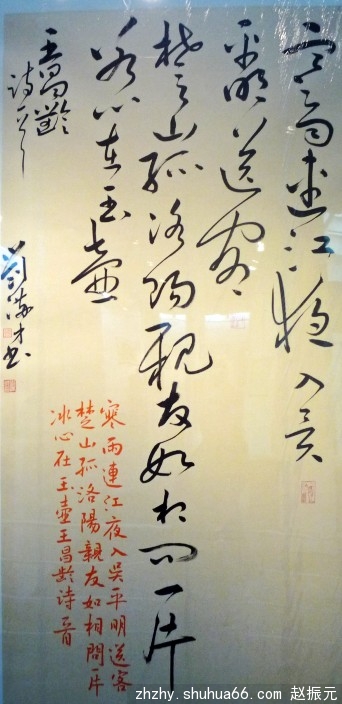 寒雨连江夜入吴
平明送客
楚山孤洛阳親友如相问一片
冰心在玉壶
王昌齡
诗一首
寒雨連江夜入吴平明送客
楚山孤洛陽親友如相問一片
冰心在玉壺王昌龄詩一首
zhzhy.shuhua66.com 赵振元